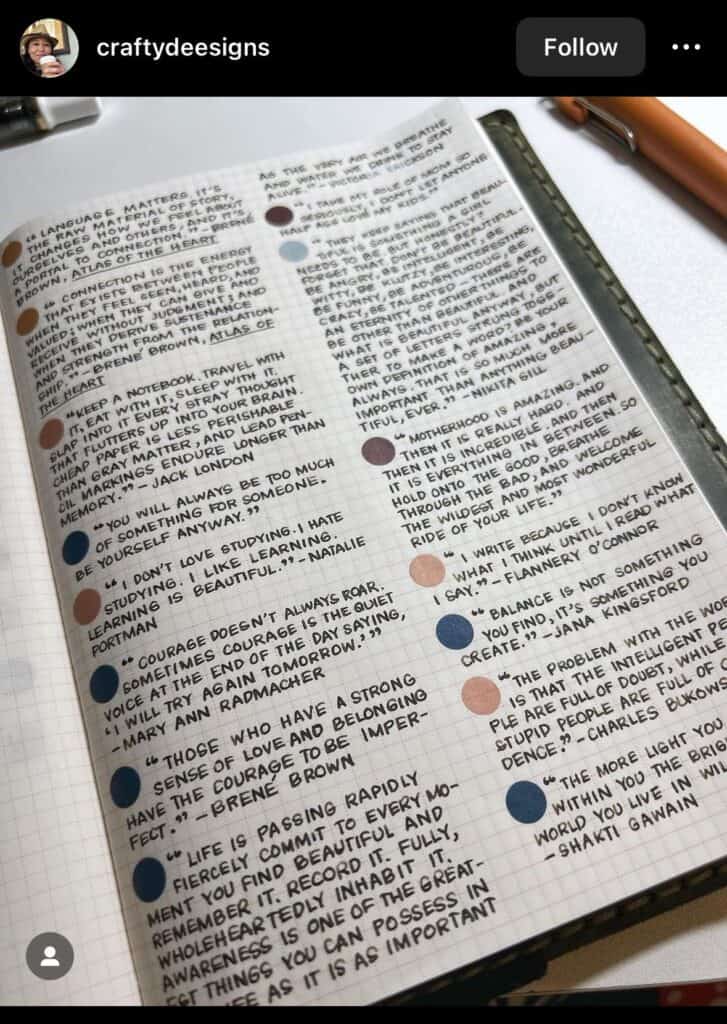 craftydeesigns
Follow
“ LANGUAGE MATTERS. IT'S
THE RAW MATERIAL OF STORY,
IT CHANGES HOW WE FEEL ABOUT
OURSELVES AND OTHERS, AND IT'S
A PORTAL TO CONNECTION.” – BRENÉ
BROWN, ATLAS OF THE HEART
“ CONNECTION IS THE ENERGY
THAT EXISTS BETWEEN PEOPLE
WHEN THEY FEEL SEEN, HEARD, AND
VALUED; WHEN THEY CAN GIVE AND
RECEIVE WITHOUT JUDGMENT; AND
WHEN THEY DERIVE SUSTENANCE
AND STRENGTH FROM THE RELATION-
SHIP.” – BRENÉ BROWN, ATLAS OF
THE HEART
“KEEP A NOTEBOOK. TRAVEL WITH
IT, EAT WITH IT, SLEEP WITH IT.
SLAP INTO IT EVERY STRAY THOUGHT
THAT FLUTTERS UP INTO YOUR BRAIN.
CHEAP PAPER IS LESS PERISHABLE
THAN GRAY MATTER, AND LEAD PEN-
CIL MARKINGS ENDURE LONGER THAN
MEMORY.” – JACK LONDON
“YOU WILL ALWAYS BE TOO MUCH
OF SOMETHING FOR SOMEONE.
BE YOURSELF ANYWAY.”
“ I DON'T LOVE STUDYING. I HATE
STUDYING. I LIKE LEARNING.
LEARNING IS BEAUTIFUL.” – NATALIE
PORTMAN
“ COURAGE DOESN'T ALWAYS ROAR.
SOMETIMES COURAGE IS THE QUIET
VOICE AT THE END OF THE DAY SAYING,
‘I WILL TRY AGAIN TOMORROW.’ ”
– MARY ANN RADMACHER
“ THOSE WHO HAVE A STRONG
SENSE OF LOVE AND BELONGING
HAVE THE COURAGE TO BE IMPER-
FECT.” – BRENÉ BROWN
“ LIFE IS PASSING RAPIDLY
FIERCELY COMMIT TO EVERY MO-
MENT YOU FIND BEAUTIFUL AND
REMEMBER IT. RECORD IT. FULLY,
WHOLEHEARTEDLY INHABIT IT.
AWARENESS IS ONE OF THE GREAT-
EST THINGS YOU CAN POSSESS IN
AS IT IS AS IMPORTANT
AS THE VERY AIR WE BREATHE
AND WATER WE DRINK TO STAY
ALIVE.” – VICTORIA ERICKSON
“ I TAKE MY ROLE OF MOM SO
SERIOUSLY, I DON'T LET ANYONE
HALF ASS LOVE MY KIDS.”
“ THEY KEEP SAYING THAT BEAU-
TIFUL IS SOMETHING A GIRL
NEEDS TO BE. BUT HONESTLY?
FORGET THAT. DON'T BE BEAUTIFUL.
BE ANGRY, BE INTELLIGENT, BE
WITTY, BE KLUTZY, BE INTERESTING,
BE FUNNY, BE ADVENTUROUS, BE
CRAZY, BE TALENTED – THERE ARE
AN ETERNITY OF OTHER THINGS TO
BE OTHER THAN BEAUTIFUL. AND
WHAT IS BEAUTIFUL ANYWAY, BUT
A SET OF LETTERS STRUNG TOGE-
THER TO MAKE A WORD? BE YOUR
OWN DEFINITION OF AMAZING,
ALWAYS. THAT IS SO MUCH MORE
IMPORTANT THAN ANYTHING BEAU-
TIFUL, EVER.” – NIKITA GILL
“ MOTHERHOOD IS AMAZING. AND
THEN IT IS REALLY HARD. AND
THEN IT IS INCREDIBLE. AND THEN
IT IS EVERYTHING IN BETWEEN. SO
HOLD ONTO THE GOOD, BREATHE
THROUGH THE BAD, AND WELCOME
THE WILDEST AND MOST WONDERFUL
RIDE OF YOUR LIFE.”
“ I WRITE BECAUSE I DON'T KNOW
WHAT I THINK UNTIL I READ WHAT
I SAY.” – FLANNERY O'CONNOR
“ BALANCE IS NOT SOMETHING
YOU FIND, IT'S SOMETHING YOU
CREATE.” – JANA KINGSFORD
“THE PROBLEM WITH THE WOR
IS THAT THE INTELLIGENT PE
PLE ARE FULL OF DOUBT, WHILE
STUPID PEOPLE ARE FULL OF C
DENCE.” – CHARLES BUKOWS
“ THE MORE LIGHT YOU
WITHIN YOU THE BRIG
WORLD YOU LIVE IN WIL
– SHAKTI GAWAIN